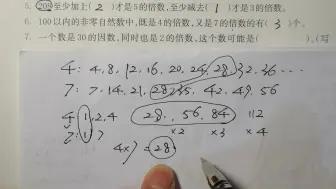 5. 208至少加上(2)才是5的倍数,至少减去(1)才是3的倍数。
6. 100以内的非零自然数中,既是4的倍数,又是7的倍数的有(3)个。
7. 一个数是30的因数,同时也是2的倍数,这个数可能是( ),(写
4: 4, 8, 12, 16, 20, 24, 28, 32, 36 ……
7: 7, 14, 21, 28, 35, 42, 49, 56
4: 1, 2, 4 28, 56, 84 112
7: 1, 7 ×2 ×3 ×4
4×7=28